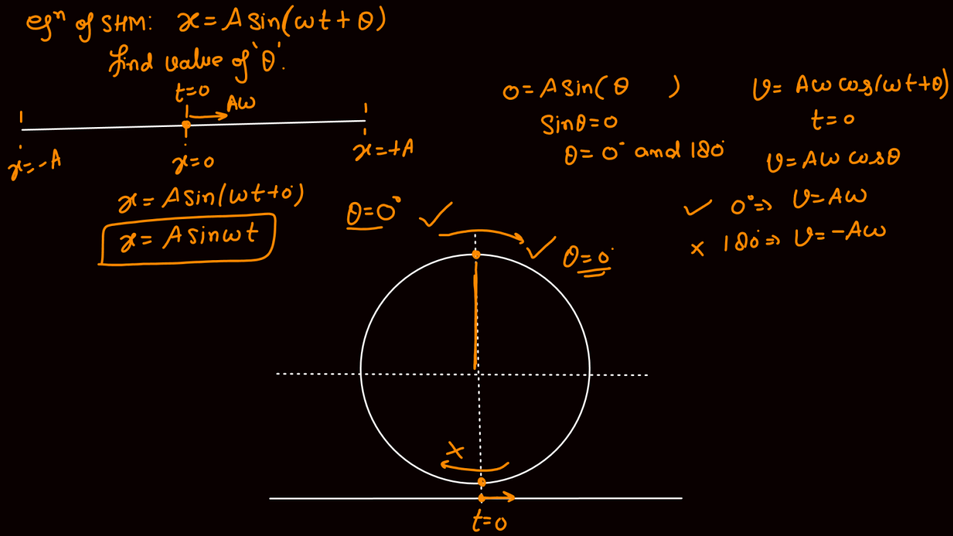 eqⁿ of SHM: x = A sin(ωt + θ)
find value of 'θ'.
t=0
Aω
x=-A
x=0
x=+A
x = A sin(ωt+0°)
x = A sin ωt
θ=0° ✓
0 = A sin( θ )
sin θ = 0
θ = 0° and 180°
v = Aω cos(ωt+θ)
t=0
v = Aω cos θ
✓ 0° ⇒ v = Aω
× 180° ⇒ v = -Aω
✓ θ=0°
×
t=0